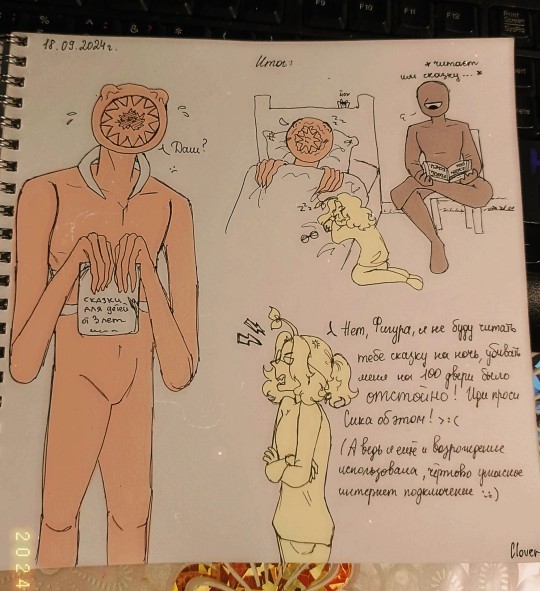 18.09.2024г.
Итог:
*читает
им сказку...*
Даш?
Сказки
для детей
от 3 лет
Нет, Фигура, я не буду читать
тебе сказку на ночь, убивать
меня на 100 двери было
отстойно! Иди проси
Сика об этом! >:(
(А ведь я ещё и возрождение
использовала, чёртово ужасное
интернет подключение
Clover
2024